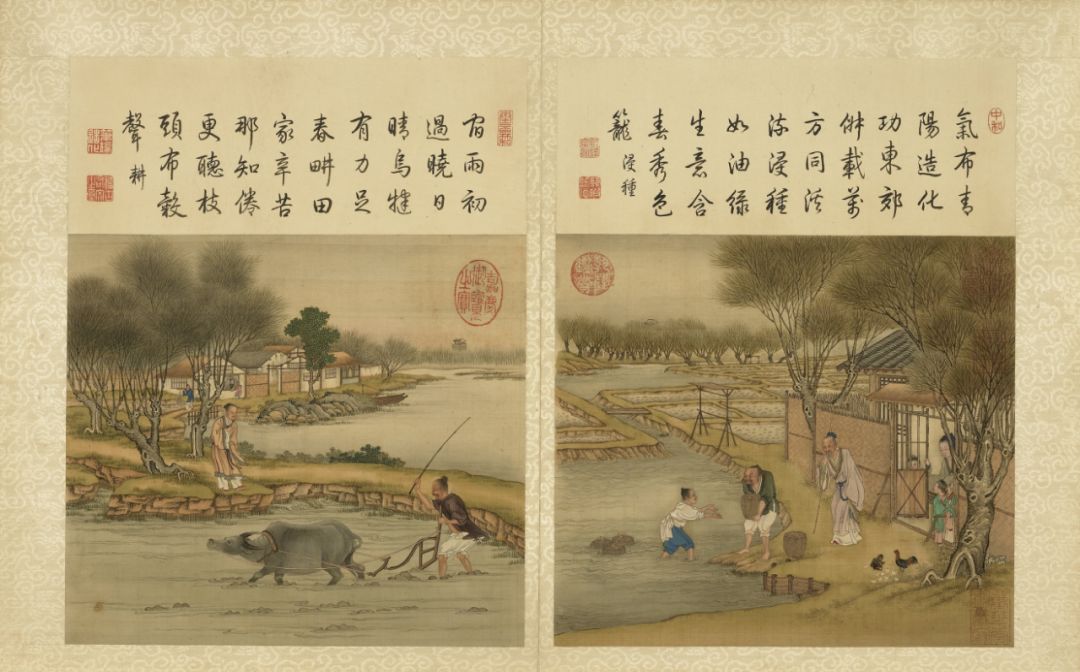 中和
氣布青
陽造化
功東郊
俶載萬
方同溪
流浸種
如油綠
生意含
春秀色
籠 浸種
宿雨初
過曉日
晴烏犍
有力足
春畊田
家辛苦
那知倦
更聽枝
頭布穀
聲 耕
嘉慶御覽之寶